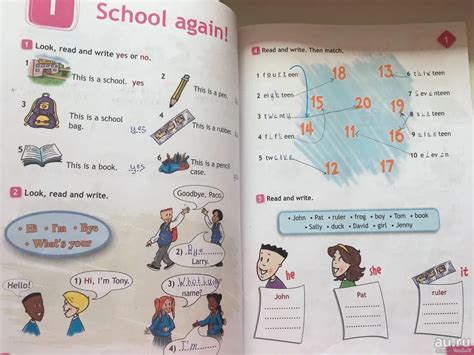 1
School again!
1 Look, read and write yes or no.
1
This is a school. yes
2
This is a pen.
3
This is a school
bag. yes
4
This is a rubber.
5
This is a book. yes
6
This is a pencil
case.
2 Look, read and write.
Hi • I'm • Bye
• What's your
Goodbye, Paco.
2) Bye
Larry.
Hello!
1) Hi, I'm Tony.
3) What's your
name?
4) I'm
1
4 Read and write. Then match.
1 fourteen
2 eighteen
4 fifteen
5 twelve
18
13
15
20
19
14
11
16
6 thirteen
7 seventeen
9
10 eleven
5 Read and write.
• John • Pat • ruler • frog • boy • Tom • book
• Sally • duck • David • girl • Jenny
he
she
it
John
Pat
ruler
au.ru